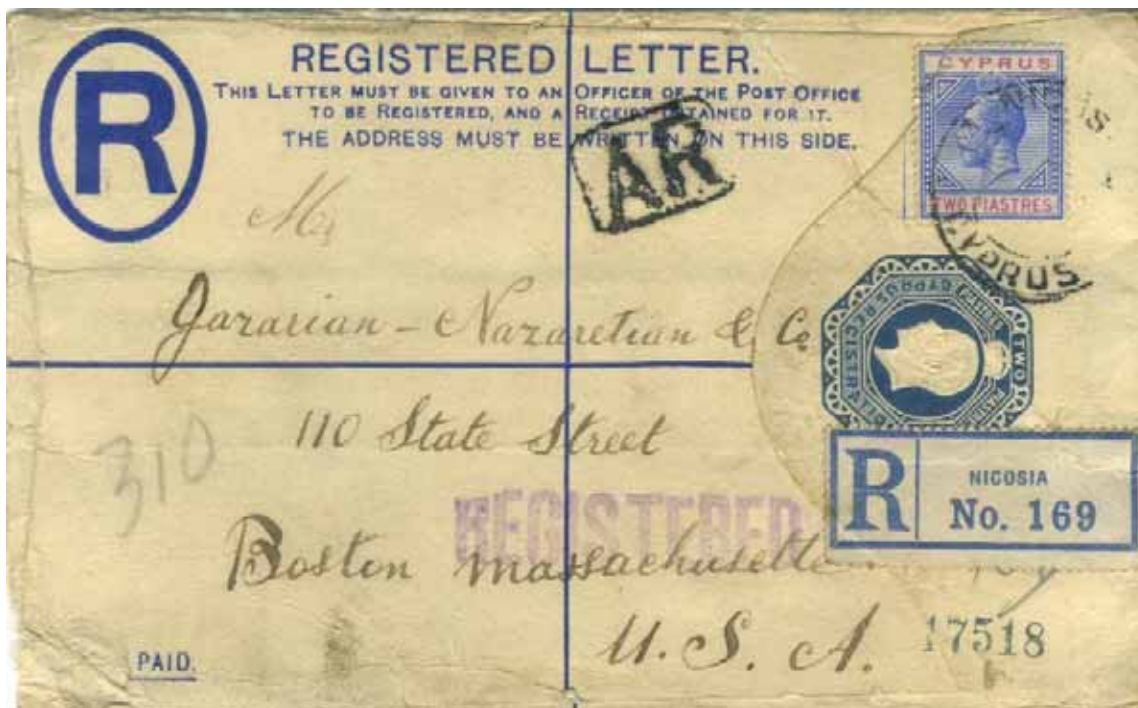 R
REGISTERED LETTER.
THIS LETTER MUST BE GIVEN TO AN OFFICER OF THE POST OFFICE
TO BE REGISTERED, AND A RECEIPT OBTAINED FOR IT.
THE ADDRESS MUST BE WRITTEN ON THIS SIDE.
CYPRUS
TWO PIASTRES
AR
CYPRUS
CYPRUS REGISTRATION
TWO
Gazarian - Nazaretian & Co
110 State Street
310
REGISTERED
R
NICOSIA
No. 169
Boston Massachusetts
U. S. A.
17518
PAID.